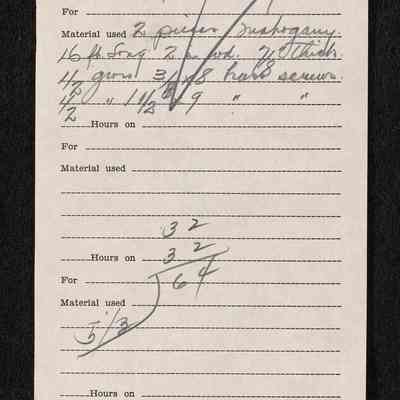 For
Material used 2 pieces mahogany.
16 ft long 2 in wd. 7/8 thick.
1/2 gross 3/4 x 8 brass screws.
1/2 " 1 1/2 x 9 " "
Hours on
For
Material used
32
Hours on 32
For 64
Material used
5/3
Hours on